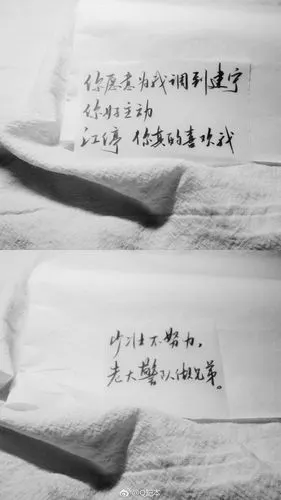 你愿意为我调到建宁
你好主动
江停 你真的喜欢我
少壮不努力,
老大警队做兄弟。